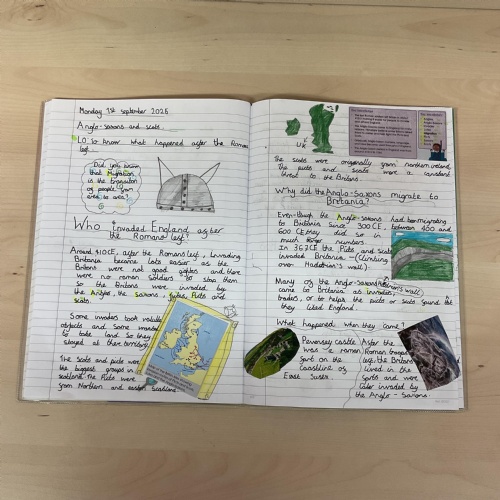 Monday 1st september 2025
Anglo-saxons and scots
LO To know what happened after the Romans
left
Did you know
that Migration
is the transition
of people from
area to area?
Who Invaded England after
the Romans left?
Around 410CE, after the Romans left, Invading
Britania became lots easier as the
Britons were not good fighters and there
were no roman soldiers to stop them
so the Britons were invaded by
the Angles, the Saxons, Jutes, Picts and
scots.
Some invaders took valuable
objects and some invaded
to take land so they
stayed at there territory.
The scots and picts were
the biggest groups in
scotland. The Picts were
from Northern and easten Scotland.
UK
The scots were originally from northern ireland.
The picts and scots were a constant
threat to the Britons.
Why did the Anglo-Saxons migrate to
Britania?
Even though the Anglo-saxons had been migrating
to Britania since 300CE, between 400 and
600 CE they did so in
much numbers
In 367CE the Picts and scots
invaded Britania - (climbing
over Hadrian's wall).
Many of the Anglo-Saxons
came to Britania as invaders,
trades, or to help the picts or scots
they liked England.
What happened when they came?
Pevensey castle
was a roman
fort on the
Coastline of
East Susex.
After the
Roman troops
left, the Britons
lived in the
forts and were
later invaded by
the Anglo-Saxons.